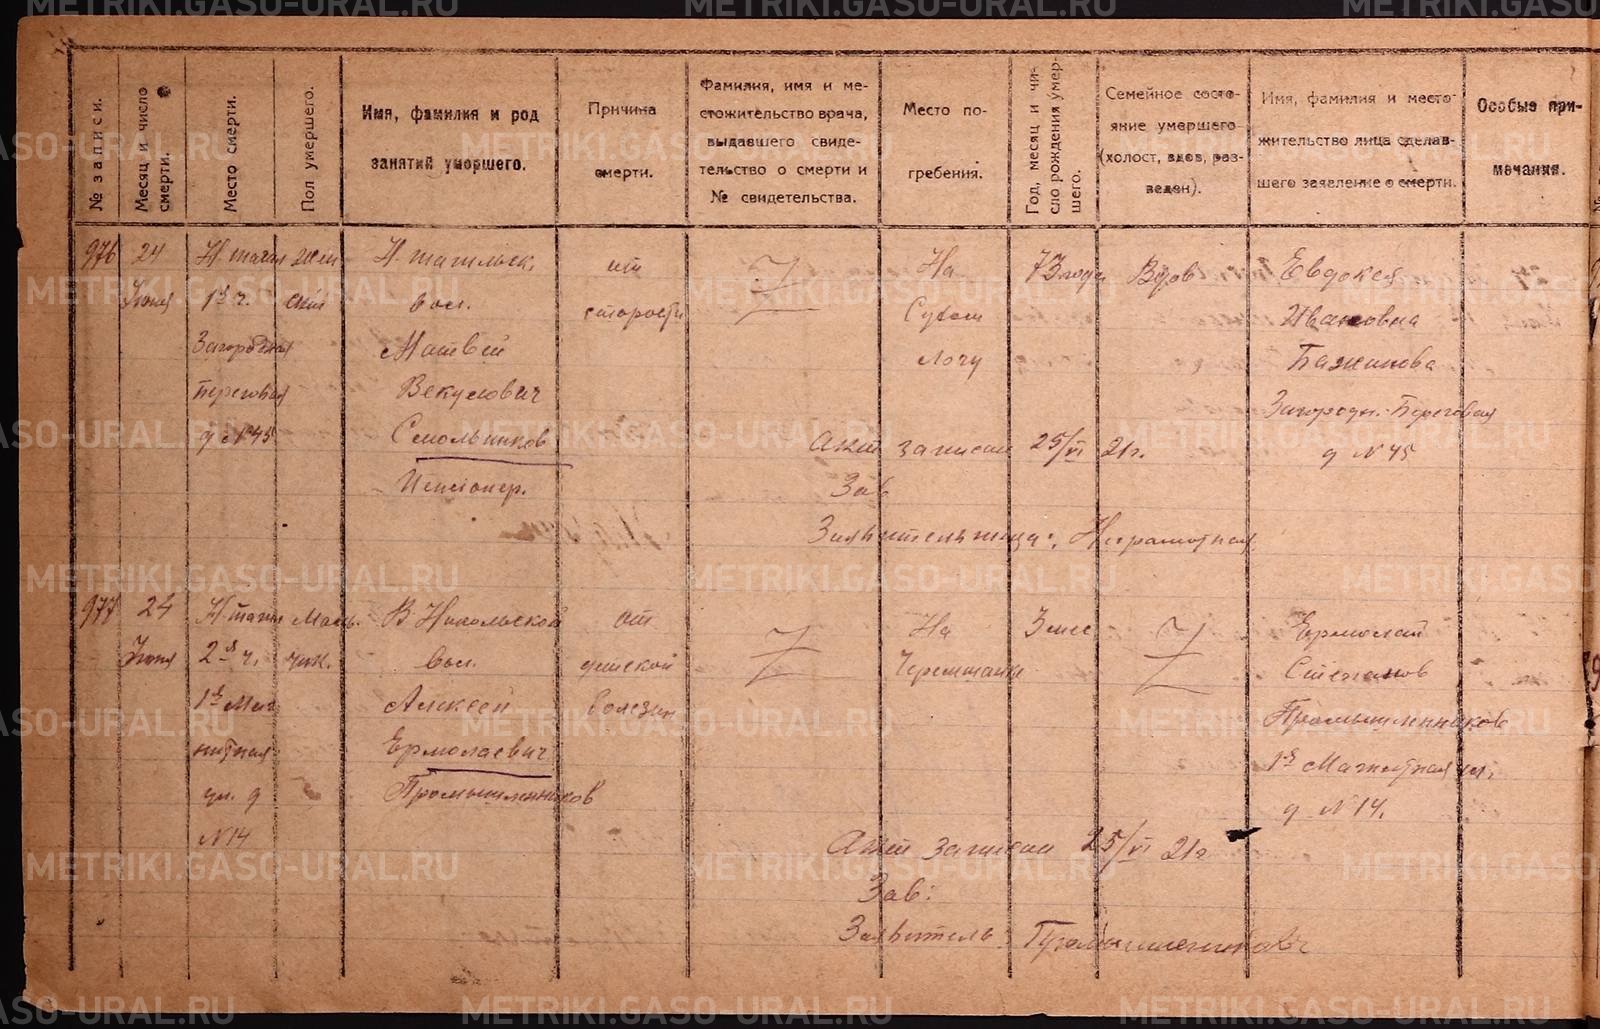 № записи.
Месяц и число смерти.
Место смерти.
Пол умершего.
Имя, фамилия и род
занятий умершего.
Причина
смерти.
Фамилия, имя и ме-
стожительство врача,
выдавшего свиде-
тельство о смерти и
№ свидетельства.
Место по-
гребения.
Год, месяц и чи-
сло рождения умер-
шего.
Семейное состо-
яние умершего
(холост, вдов, раз-
веден).
Имя, фамилия и место-
жительство лица сделав-
шего заявление о смерти.
Особые при-
мечания.
976
24
Июня
Н. тагил
1я ч.
Загородная
Береговая
д N 45
жен
ский
Н. тагильск.
вол.
Матвей
Векулович
Смольников
Пенсіонер.
от
старости
На
Сухом
Логу
73 года
Вдов
Евдокея
Ивановна
Баженова
Загородн. Береговая
д N 45
Акт записан 25/VI 21г.
Зав
Заявительница: Неграмотная
977
24
Июня
Н. тагил
2я ч.
1я Маг
нитная
ул. д
N 14
Муж.
В. Никольской
вол.
Алексей
Ермолаевич
Промышленников
от
детской
болезни
На
Черемшанке
3 мес
Ермолай
Степанов
Промышленников
1я Магнитная ул.
д N 14.
Акт записан 25/VI 21г
Зав:
Заявитель: Промышленников
METRIKI.GASO-URAL.RU